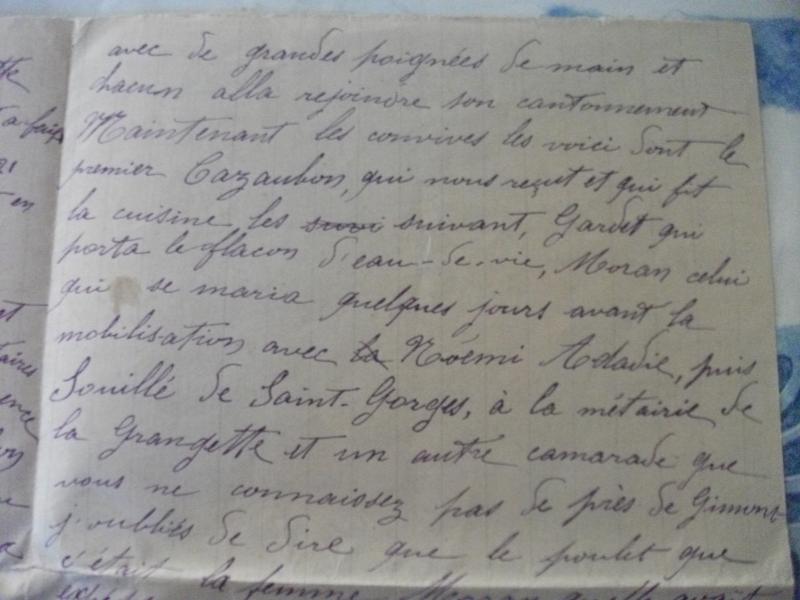 avec de grandes poignées de main et
chacun alla rejoindre son cantonnement
Maintenant les convives les voici dont le
premier Cazaubon, qui nous reçut et qui fit
la cuisine les suivi suivant, Gardet qui
porta le flacon d'eau-de-vie, Moran celui
qui se maria quelques jours avant la
mobilisation avec la Noémi Adadie, puis
Souillé de Saint-Gorges, à la métairie de
la Grangette et un autre camarade que
vous ne connaissez pas de près de Gimont
j'oubliés de dire que le poulet que
c'était la femme Moran